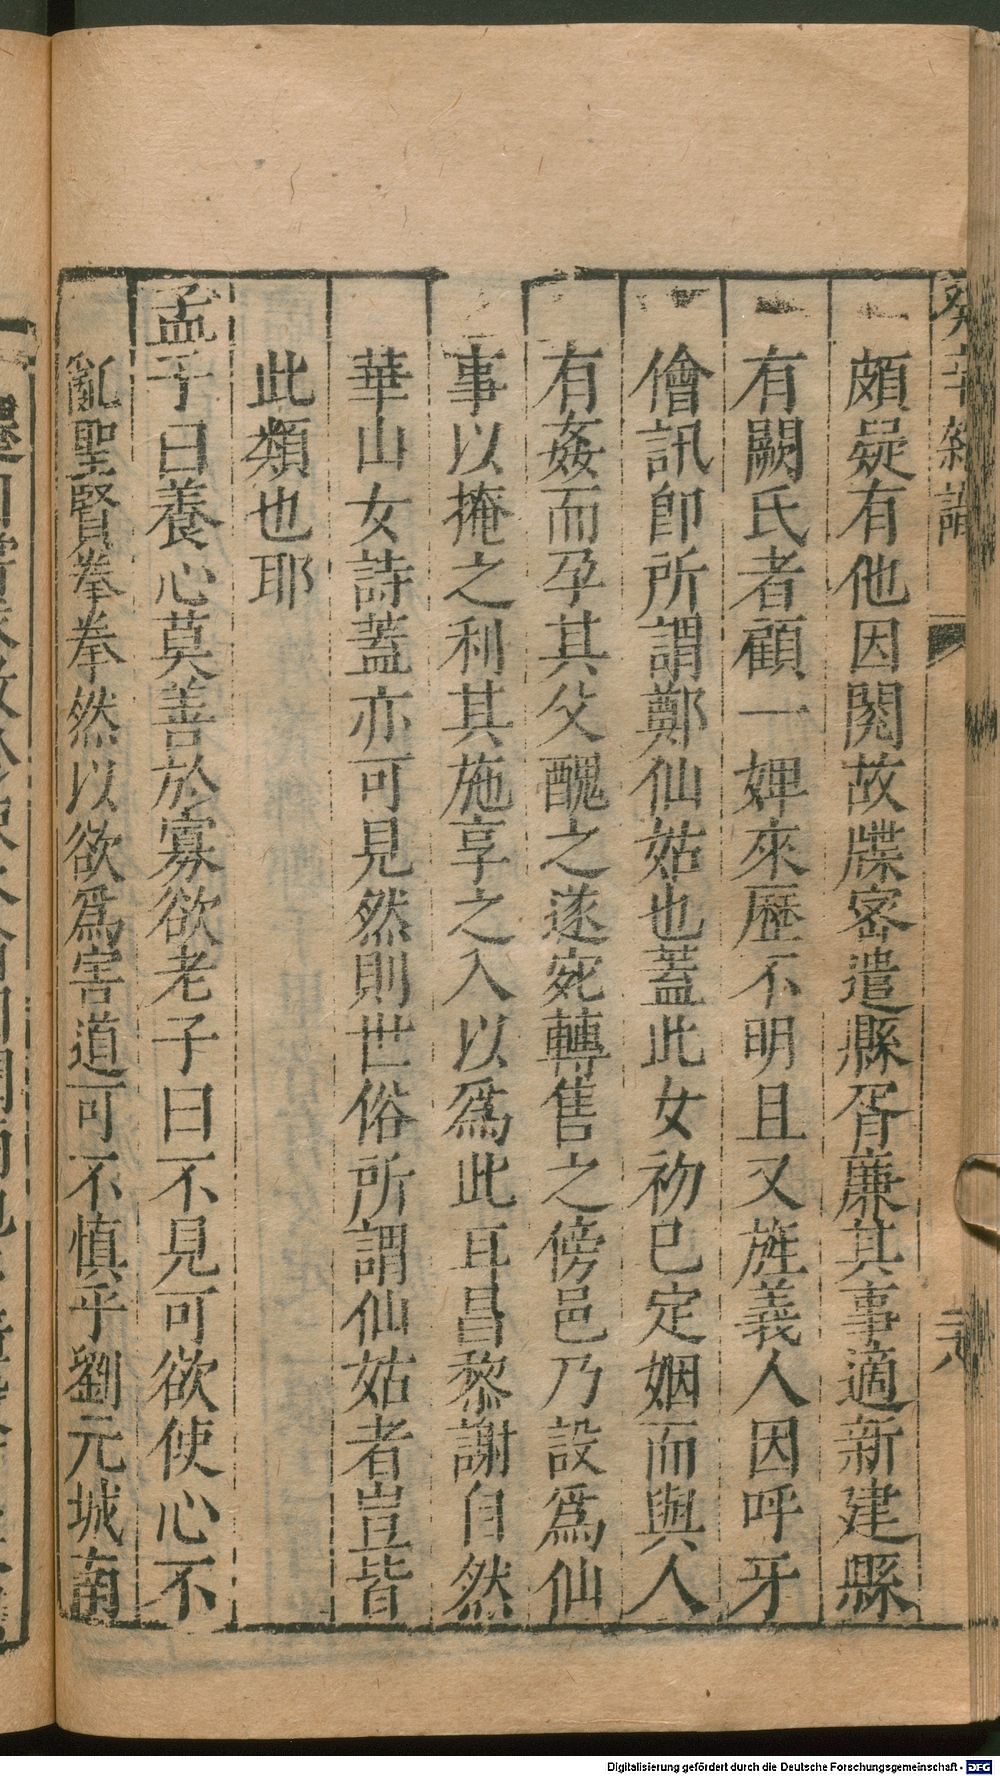 癸辛雜識
二十八
頗疑有他因閱故牒密遣縣胥廉其事適新建縣
有闕氏者顧一婢來歷不明且又旌義人因呼牙
儈訊即所謂鄭仙姑也蓋此女初已定姻而與人
有姦而孕其父醜之遂宛轉售之傍邑乃設爲仙
事以掩之利其施享之入以爲此耳昌黎謝自然
華山女詩蓋亦可見然則世俗所謂仙姑者豈皆
此類也耶
孟子曰養心莫善於寡欲老子曰不見可欲使心不
亂聖賢拳拳然以欲爲害道可不慎乎劉元城南
Digitalisierung gefördert durch die Deutsche Forschungsgemeinschaft - DFG